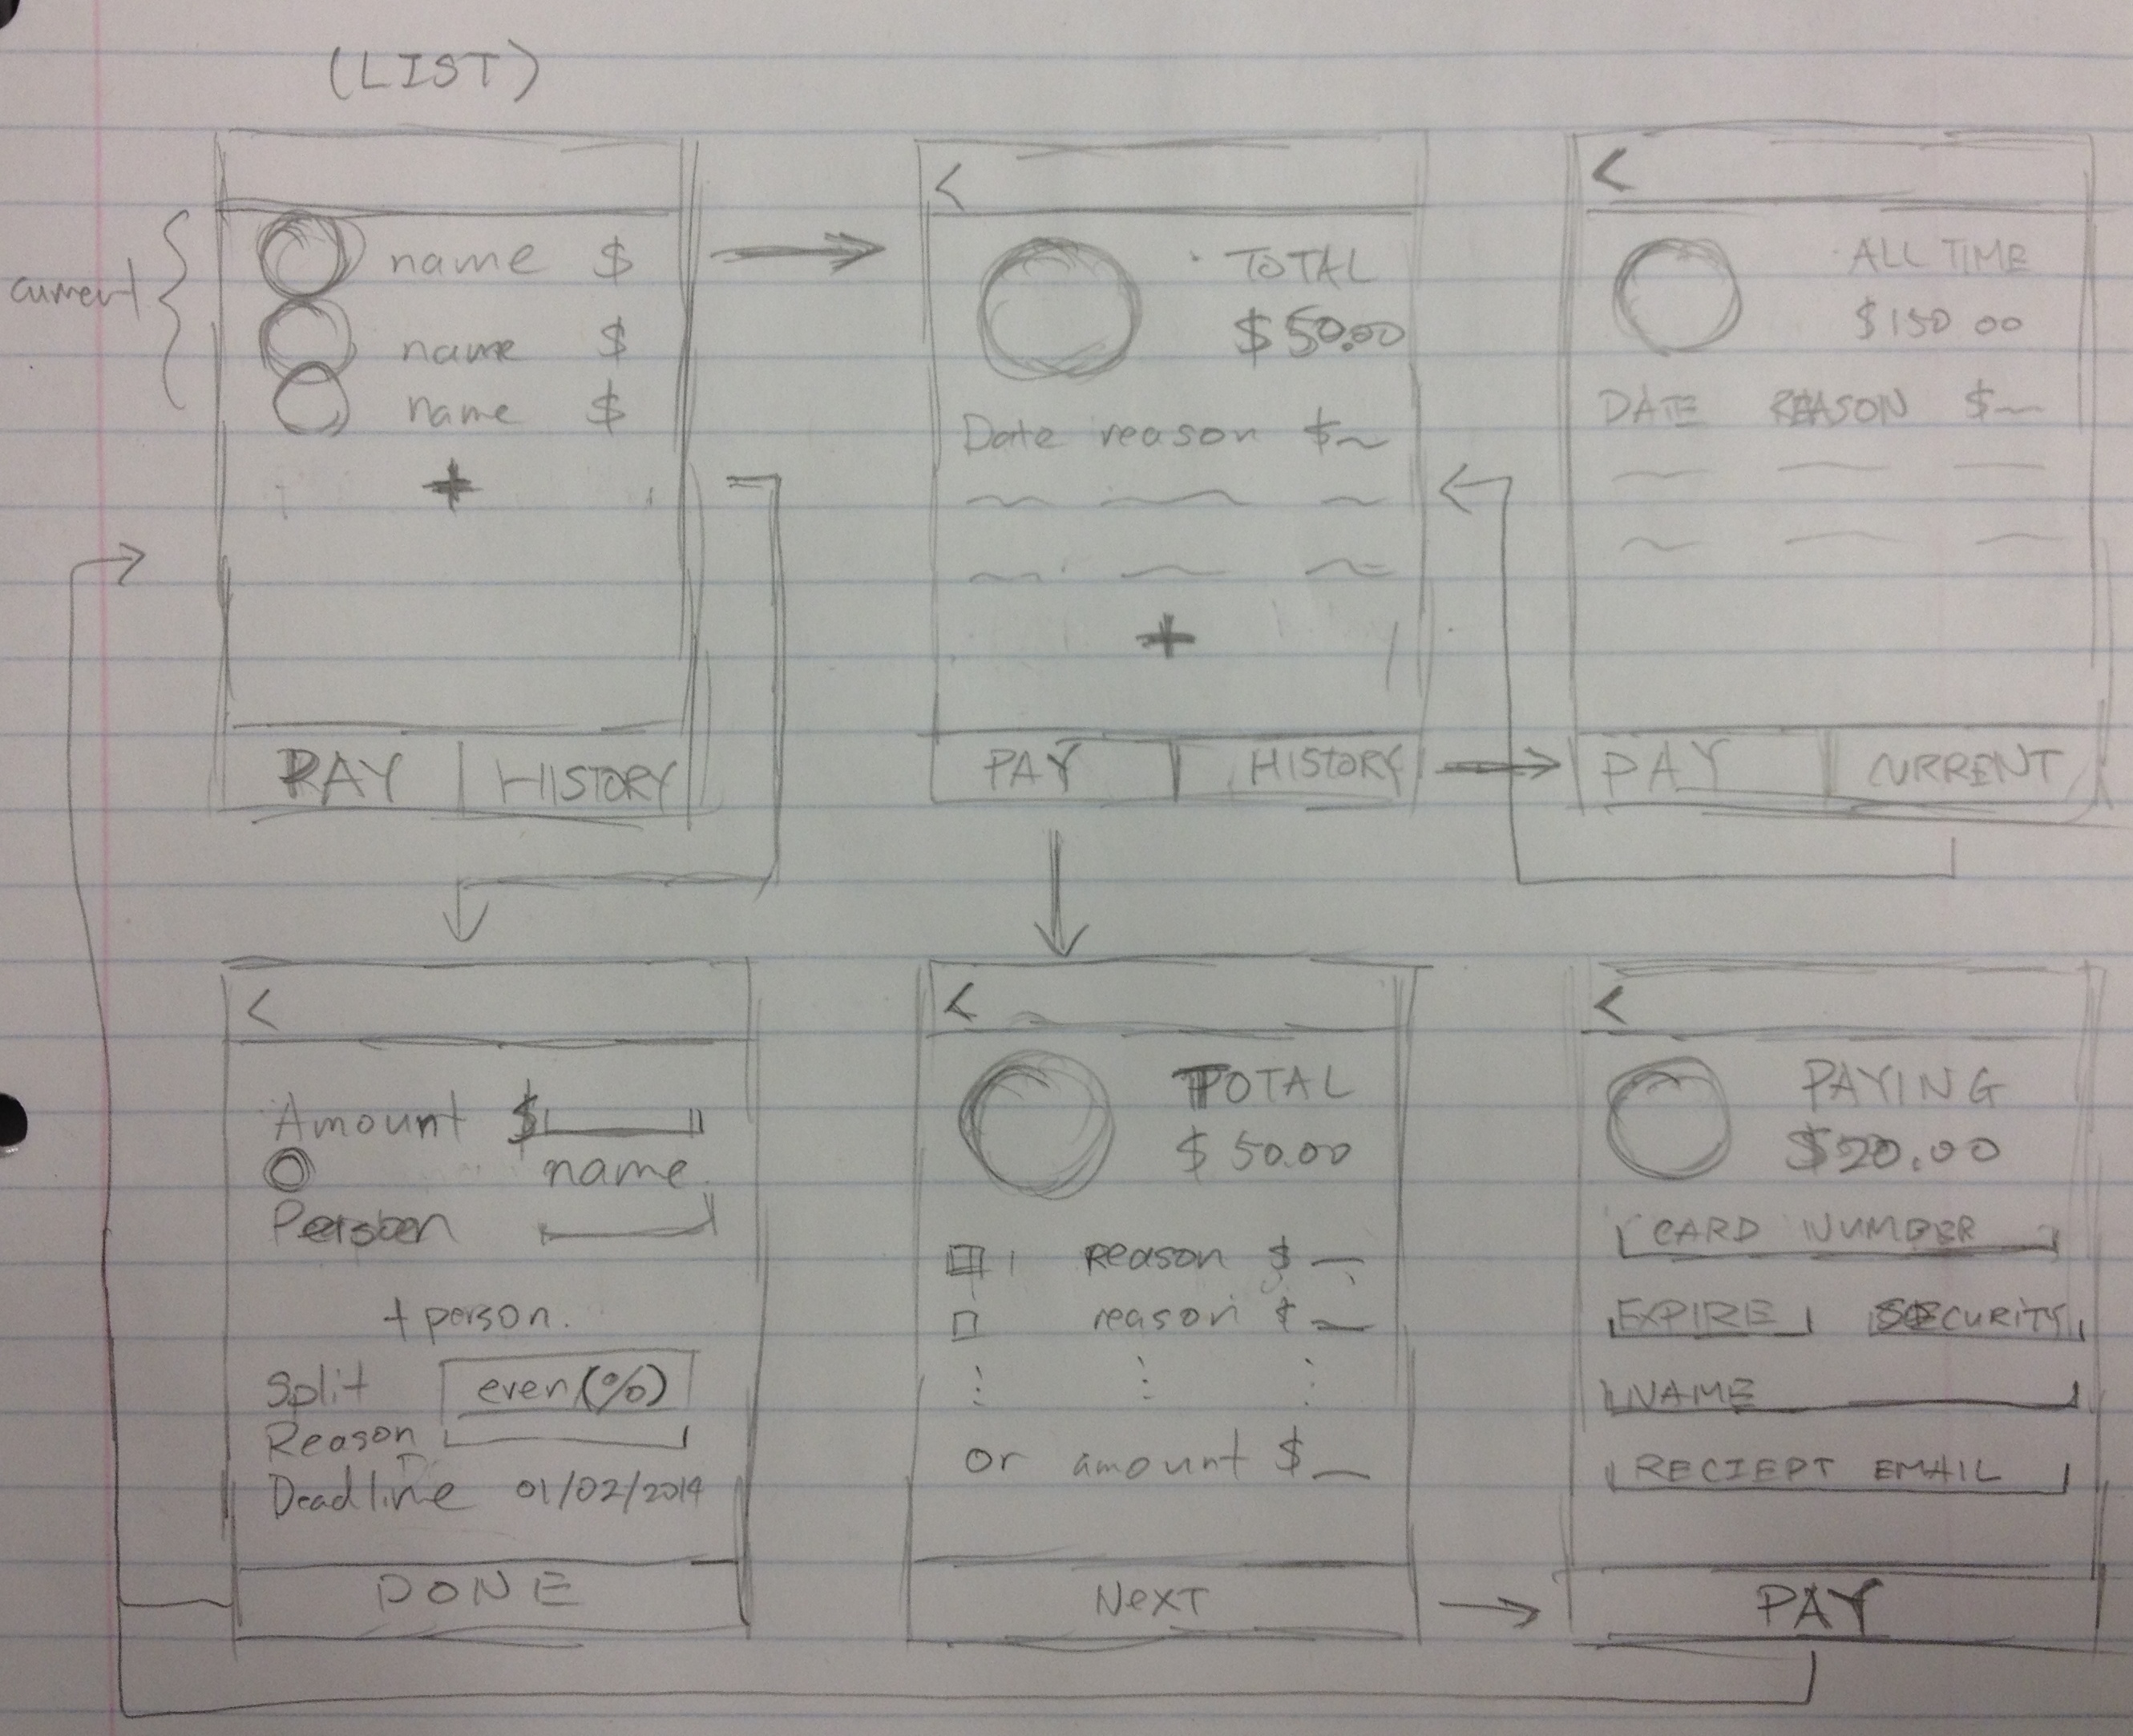 (LIST)
current
name $
name $
name $
+
PAY | HISTORY
<
TOTAL
$50.00
Date reason $~
+
PAY | HISTORY
<
ALL TIME
$150 00
DATE REASON $~
PAY | CURRENT
<
Amount $
name
Person
+ person.
Split even (%)
Reason
Deadline 01/02/2014
DONE
<
TOTAL
$50.00
Reason $ _
reason $ _
or amount $ _
NEXT
<
PAYING
$20.00
CARD NUMBER
EXPIRE SECURITY
NAME
RECIEPT EMAIL
PAY